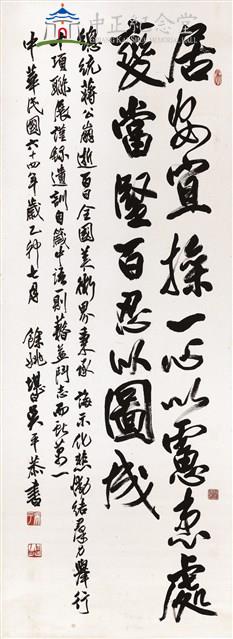 中正紀念堂
居安宜操一心以慮患處
變當堅百忍以圖成
總統蔣公崩逝百日全國美術界秉承 誨示化悲慟結羣力舉行
十項聯展謹錄遺訓自箴中語一則藉益鬥志而萬一
中華民國六十四年歲乙卯七月 餘姚堪白吳平恭書